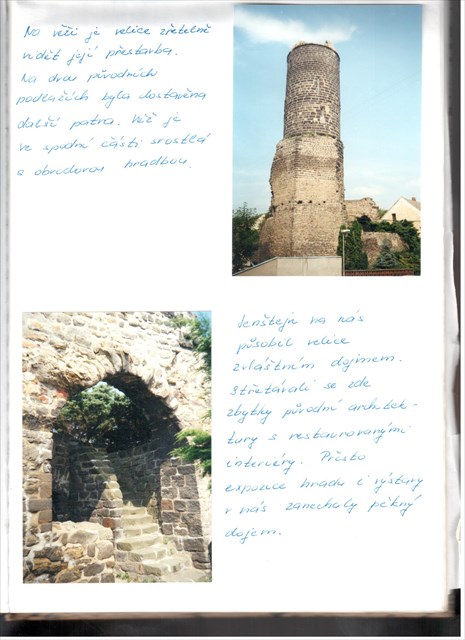 Na věži je velice zřetelně
vidět její přestavba.
Na dvou původních
podlažích byla dostavěna
další patra. Věž je
ve spodní části srostlá
s obvodovou hradbou.
Jenštejn na nás
působil velice
zvláštním dojmem.
Střetávali se zde
zbytky původní architek-
tury s restaurovanými
interiéry. Přesto
expozice hradu i výstavy
v nás zanechaly pěkný
dojem.